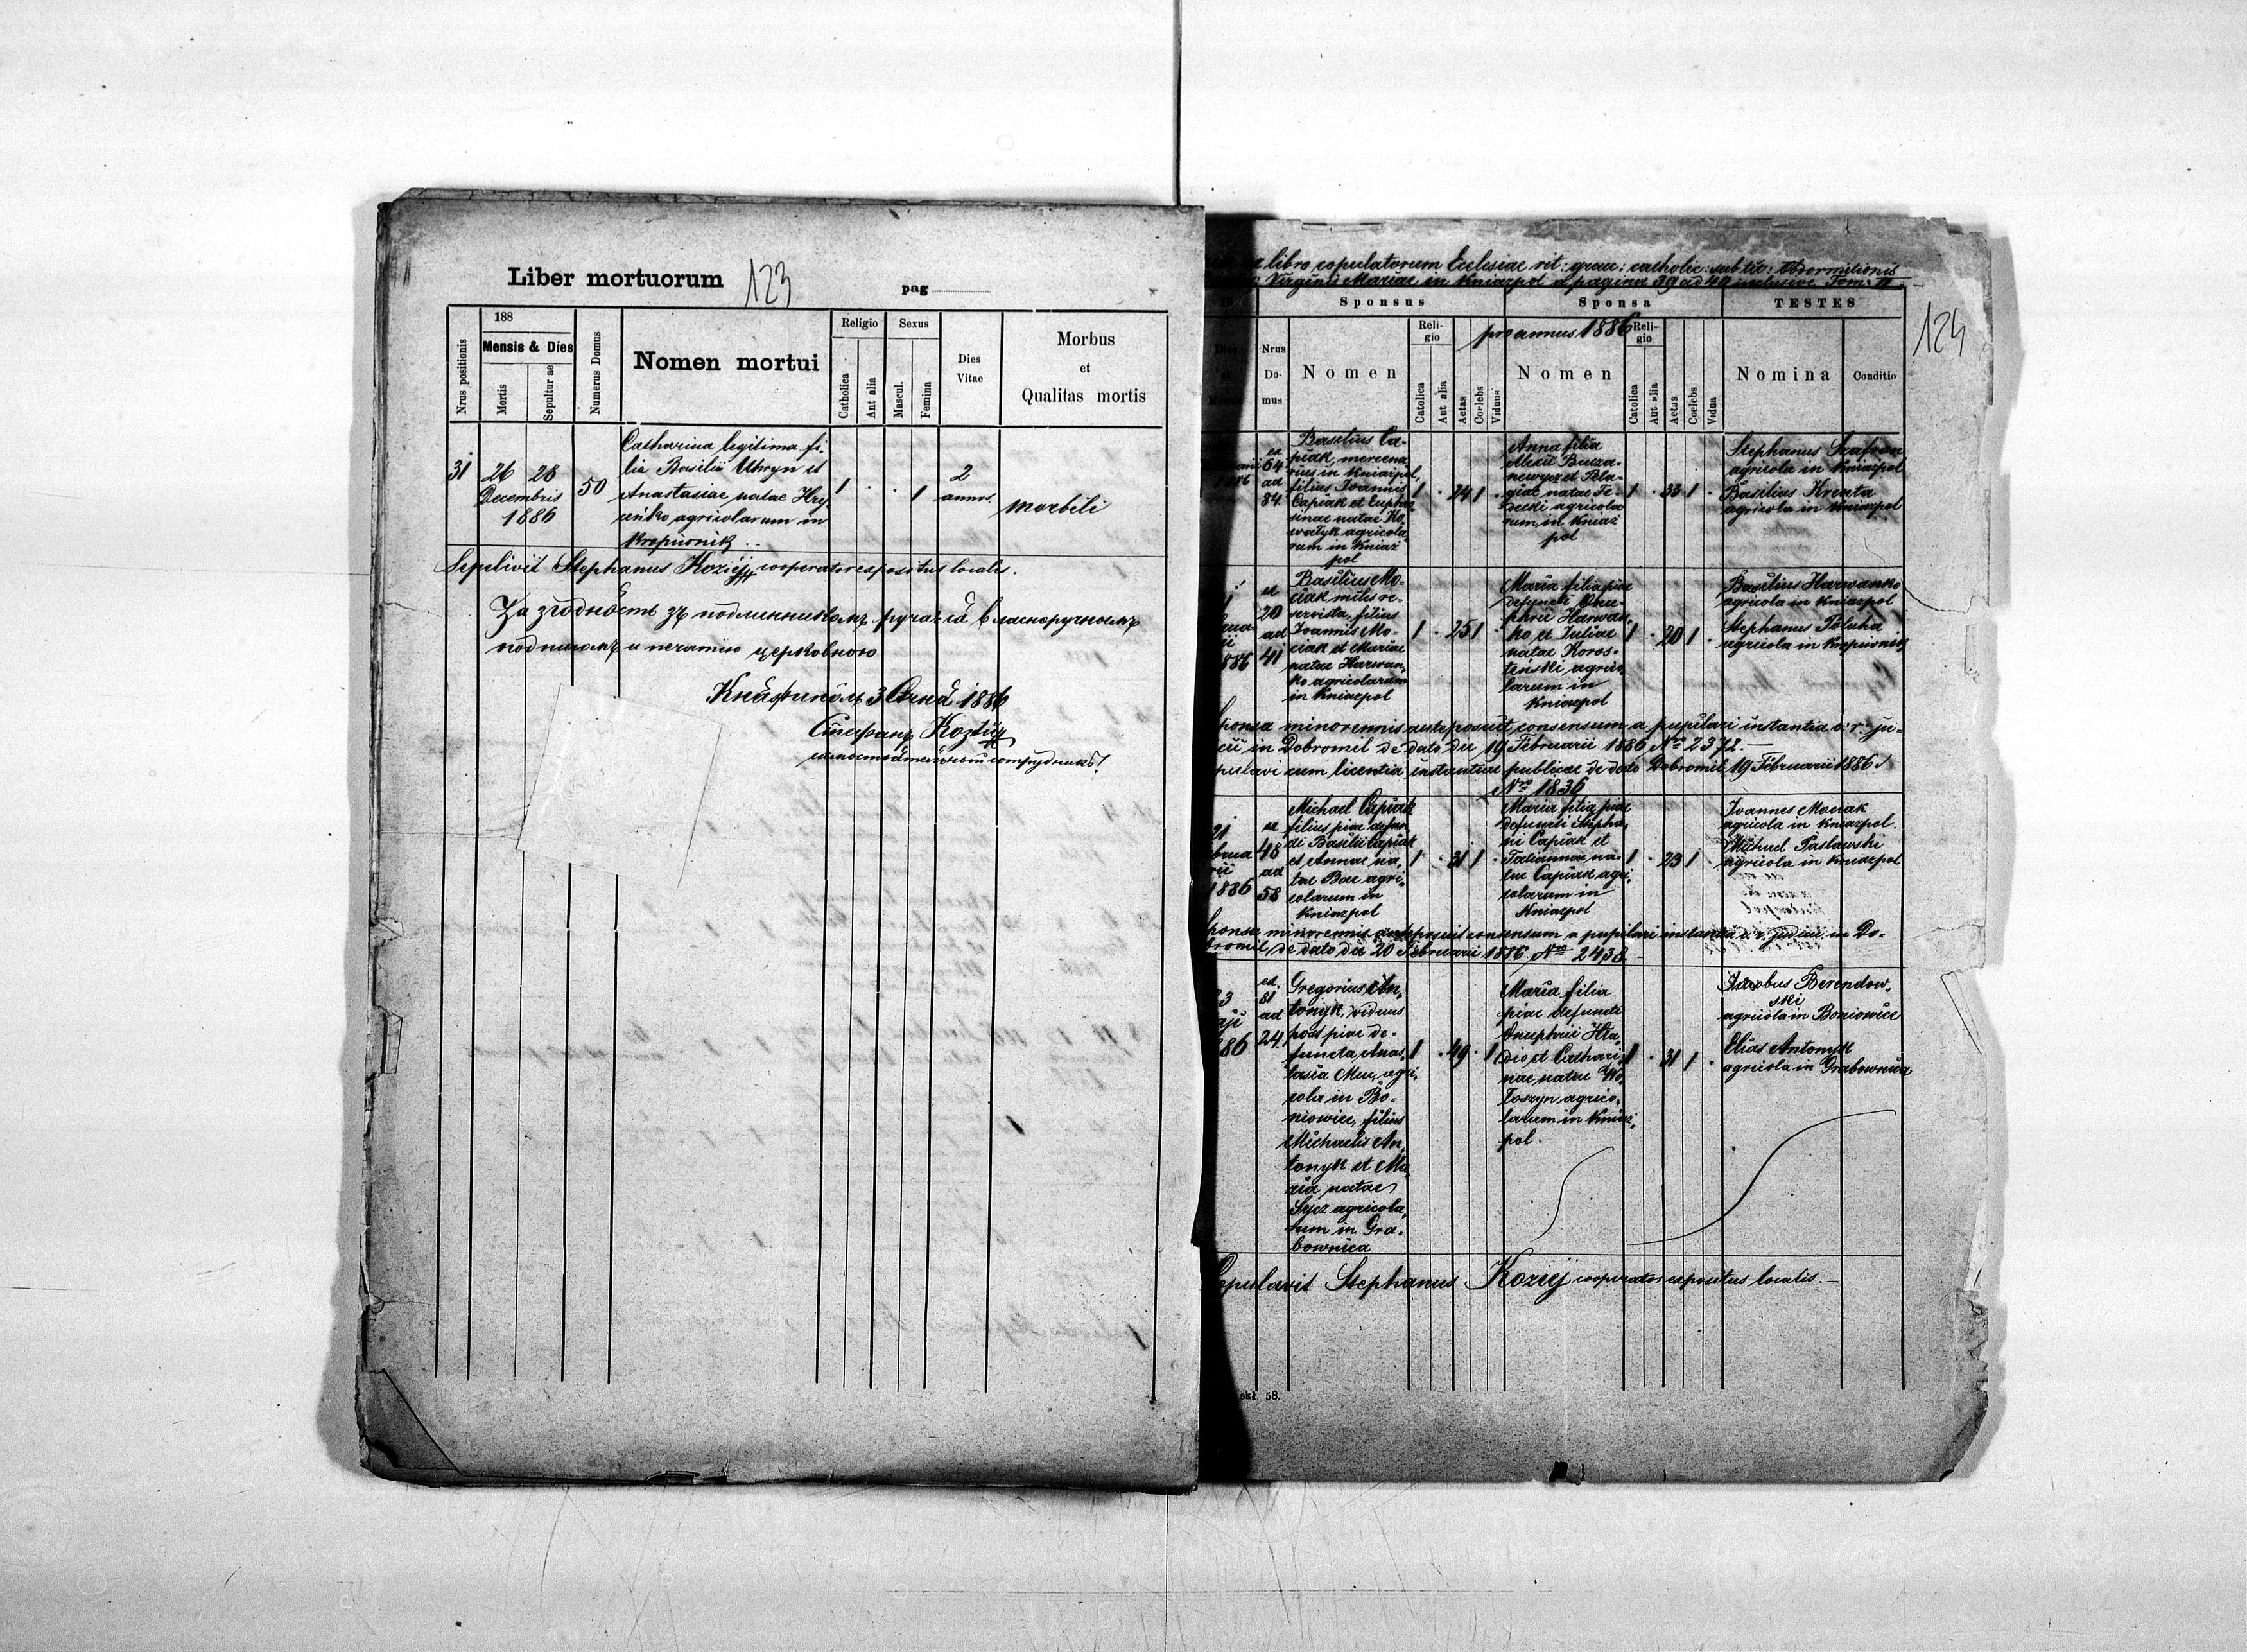 Liber mortuorum 123 pag
Nrus positionis
188
Mensis & Dies
Mortis
Sepultur ae
Numerus Domus
Nomen mortui
Religio
Catholica
Aut alia
Sexus
Mascul.
Femina
Dies
Vitae
Morbus
et
Qualitas mortis
31
26 28
Decembris
1886
50
Catharina legitima fi-
lia Basilii Uhryn et
Anastasiae natae Hry-
agricolarum in
Kropiwnik
1 . . 1
2
annor.
morbili
Sepelivit Stephanus Koziej cooperator expositus localis.
За згодность зъ подлинникомъ ручаю власноручнымъ
подписомъ и печатію церковною
3 1886
Стефанъ
сотрудникъ
libro copulatorum Ecclesiae rit: graec: catholic: sub tit: Obdormitionis
Virginis Mariae in Kniazpol a pagina 39 ad 40 inclusive Tom: II
124
Sponsus
Sponsa
TESTES
pro annus 1886
Nrus
Do-
mus
Nomen
Reli-
gio
Catolica
Aut alia
Aetas
Coelebs
Viduus
Nomen
Reli-
gio
Catolica
Aut alia
Aetas
Coelebs
Vidua
Nomina
Conditio
1886
ex
64
ad
84
Basilius Ca-
piak, mercena-
rius in Kniazpol,
filius Joannis
Capiak et Euphro-
sinae natae Ko-
watyk agricola-
rum in Kniaz
pol
1 . 24 1 .
Anna filia
Alexii
et Pela-
giae natae
agricola
rum in Kniaz
pol
1 . 33 1 .
Stephanus Szafran
agricola in Kniazpol
Basilius Krenta
agricola in Kniazpol
1886
ex
20
ad
41
Basilius Mo-
ciak miles re-
servista, filius
Joannis Mo-
ciak et Mariae
natae Harwan-
ko agricolarum
in Kniazpol
1 . 25 1 .
Maria filia piae
defuncti Onu-
phrii Harwan-
ko et Juliae
natae Koros-
teński, agrico-
larum in
Kniazpol
1 . 20 1 .
Basilius Harwanko
agricola in Kniazpol
Stephanus Poluha
agricola in Kropiwnik
Sponsa minorennis anteposuit consensum a pupilari instantia c: r: ju-
cii in Dobromil de dato die 19 Februarii 1886 Nro 2372.—
cum licentia instantiae publicae de dato Dobromil 19 Februarii 1886.
Nro 1836
21
Februa
rii
1886
ex
48
ad
58
Michael Capiak
filius piae defun-
cti Basilii Capiak
et Annae na-
tae Bac agri-
colarum in
Kniazpol
1 . 31 1 .
Maria filia piae
defuncti Stepha-
ni Capiak et
Tatiannae na-
tae Capiak agri-
colarum in
Kniazpol
1 . 23 1 .
Joannes Mociak
agricola in Kniazpol.
Michael Paslawski
agricola in Kniazpol
Sponsa minorennis anteposuit consensum a pupilari instantia c. r. judicii in Do-
bromil, de dato die 20 Februarii 1886 Nro 2438.—
ex.
81
ad
24.
Gregorius An-
tonyk, viduus
post piae de-
functa Anas-
tasia Muc, agri-
cola in Bo-
niowice, filius
Michaelis An-
tonyk et Ma-
ria natae
Sycz agricola-
rum in Gra-
bownica
1 . 49 . 1
Maria filia
piae defuncti
Onuphrii Hla-
dio et Cathari-
nae natae Wo-
loszyn agrico-
larum in Kniaz-
pol.
1 . 31 1 .
Jacobus Berendow-
ski
agricola in Boniowice
Elias Antonyk
agricola in Grabownica
Copulavit Stephanus Koziej cooperator expositus localis.—
skł. 58.